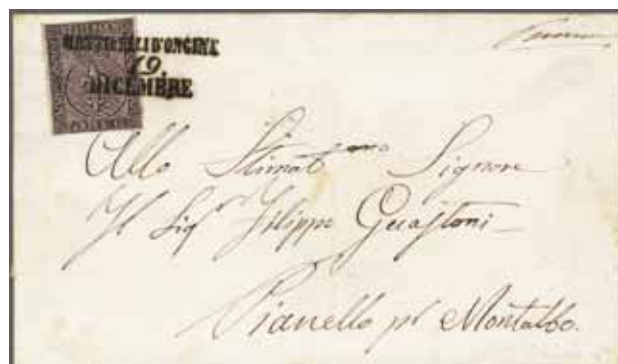 MONTICELLI D'ONGINA
19
DICEMBRE
Allo Stimat.mo Signore
Il Sig.r Filippo Guastoni
Pianello pr Montalbo.